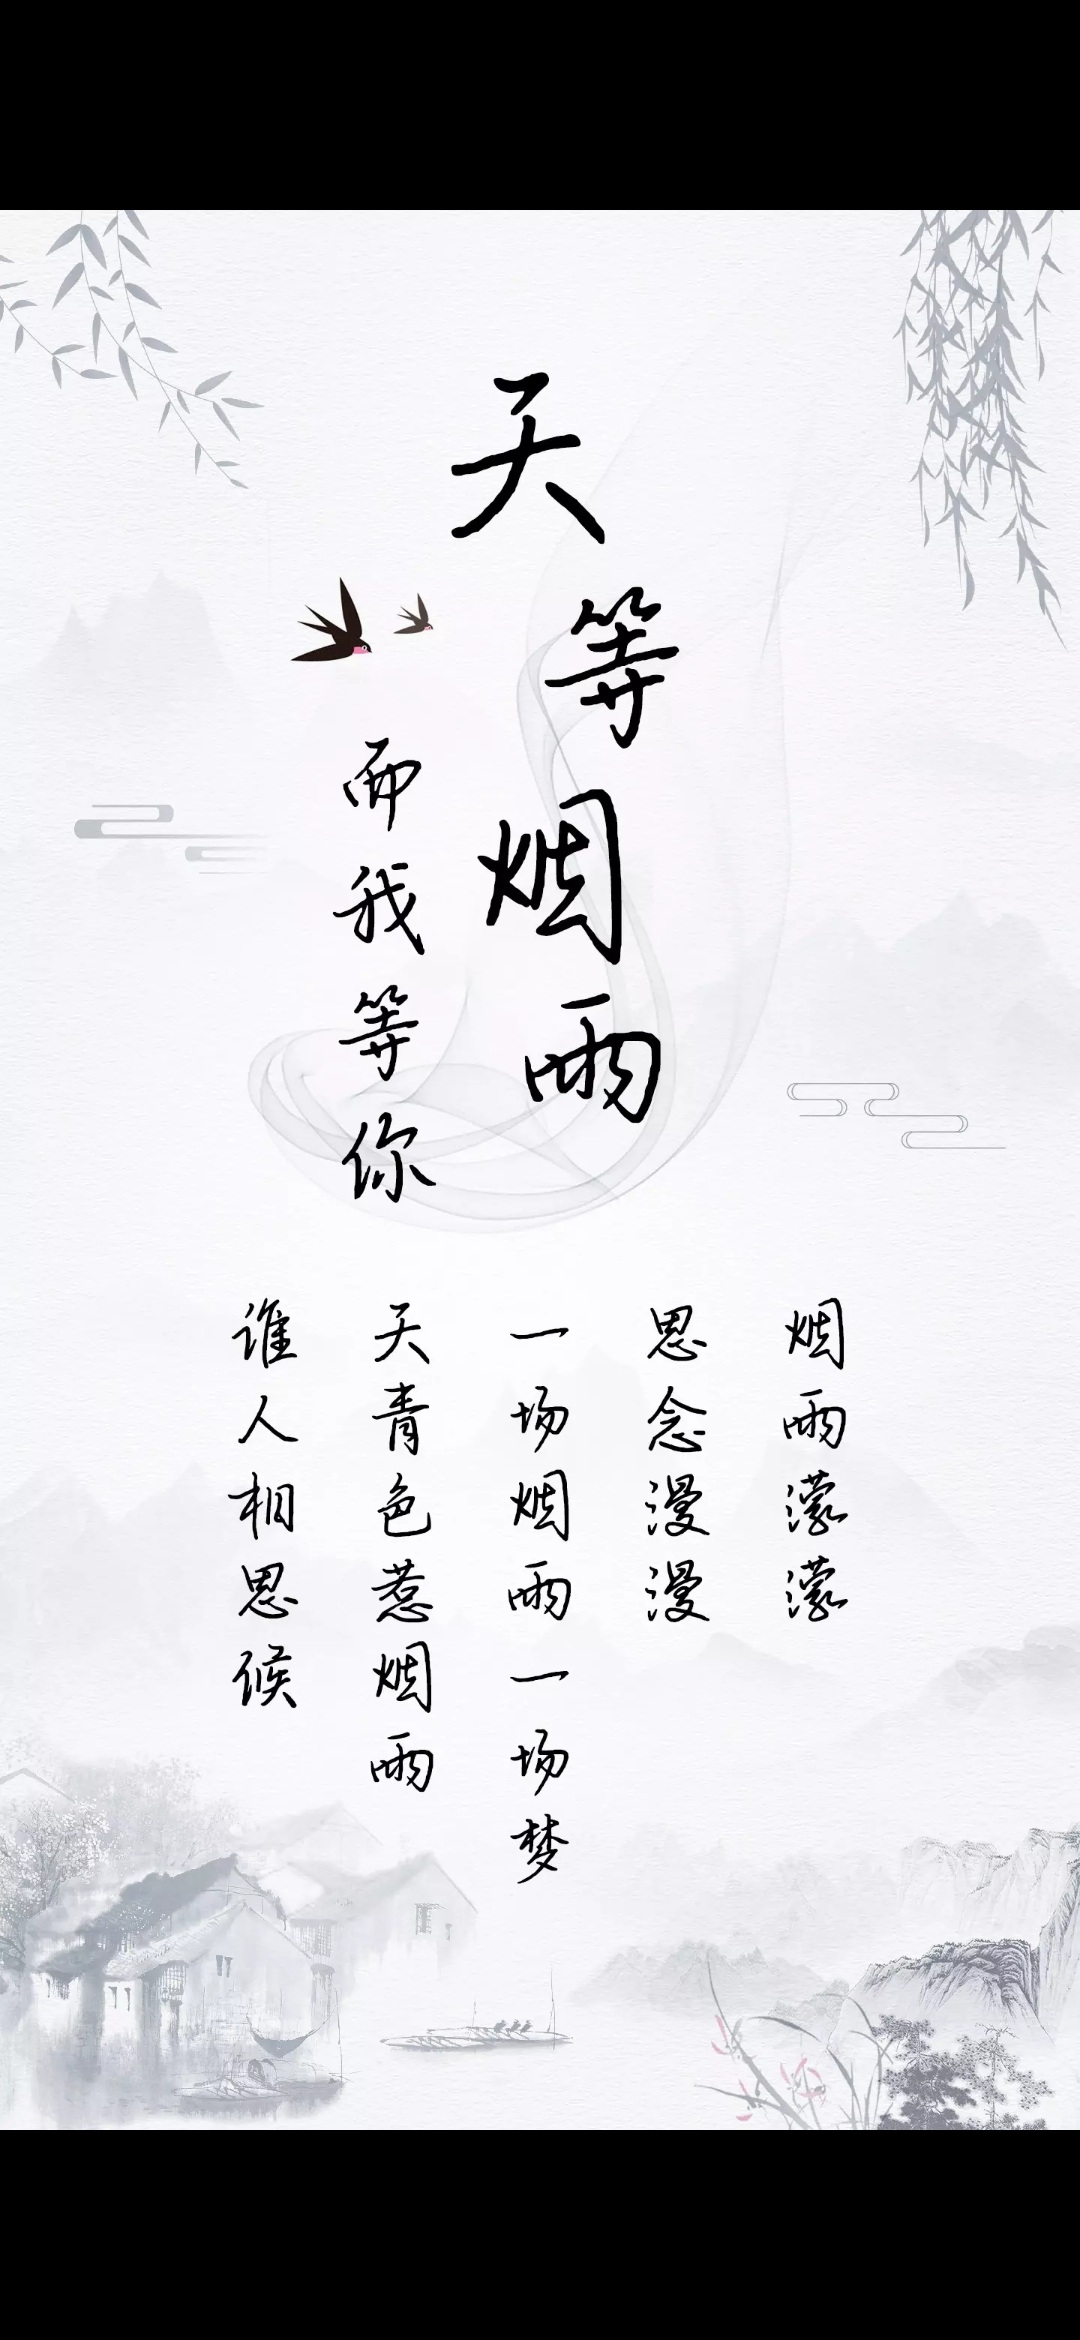 天等烟雨
而我等你
烟雨濛濛
思念漫漫
一场烟雨一场梦
天青色惹烟雨
谁人相思候